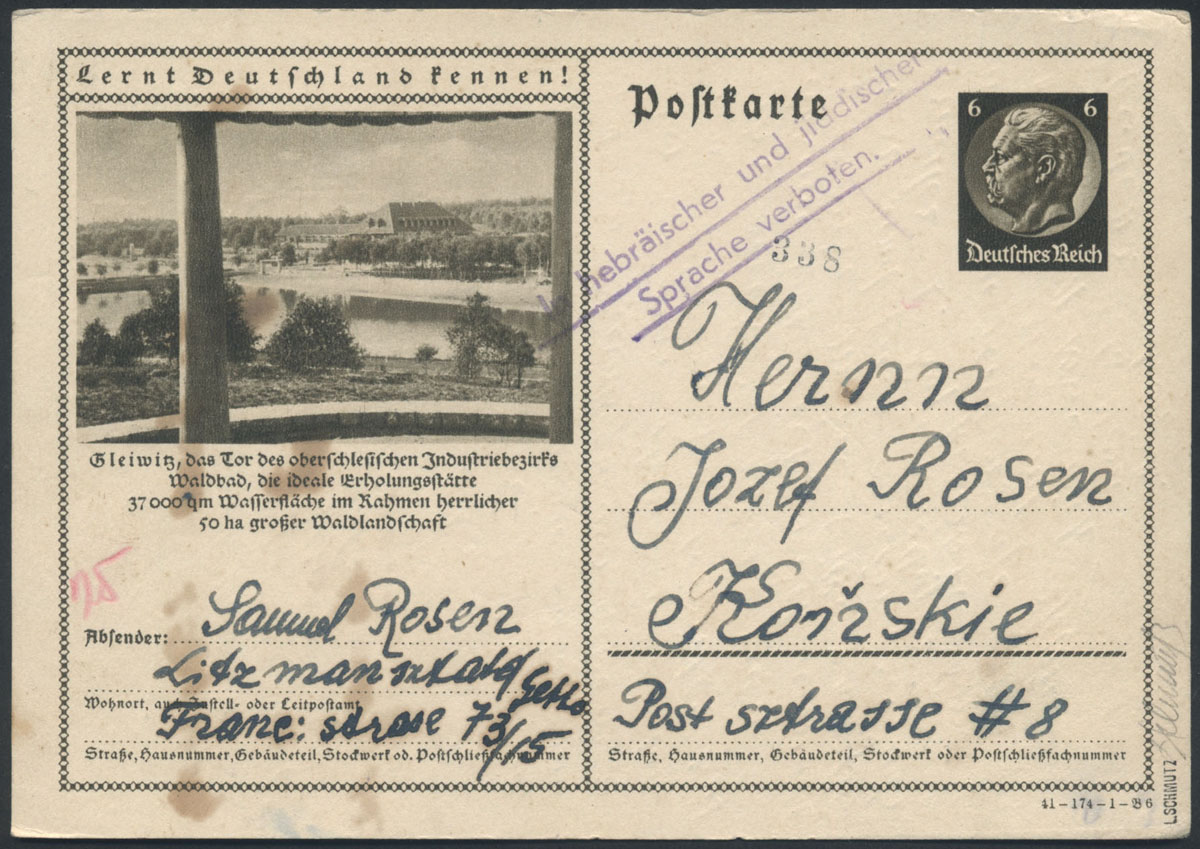 Lernt Deutschland kennen!
Gleiwitz, das Tor des oberschlesischen Industriebezirks
Waldbad, die ideale Erholungsstätte
37000 qm Wasserfläche im Rahmen herrlicher
50 ha großer Waldlandschaft
Absender: Samuel Rosen
Litzmansztadt/Getto
Wohnort, auch Zustell- oder Leitpostamt
Franc: strase 73/15
Straße, Hausnummer, Gebäudeteil, Stockwerk od. Postschließfachnummer
Postkarte
hebräischer und jiddischer
Sprache verboten.
338
6 6
Deutsches Reich
Hernn
Jozef Rosen
Końżskie
Post sztrasse # 8
Straße, Hausnummer, Gebäudeteil, Stockwerk oder Postschließfachnummer
41-174-1-B6
L.SCHMUTZ